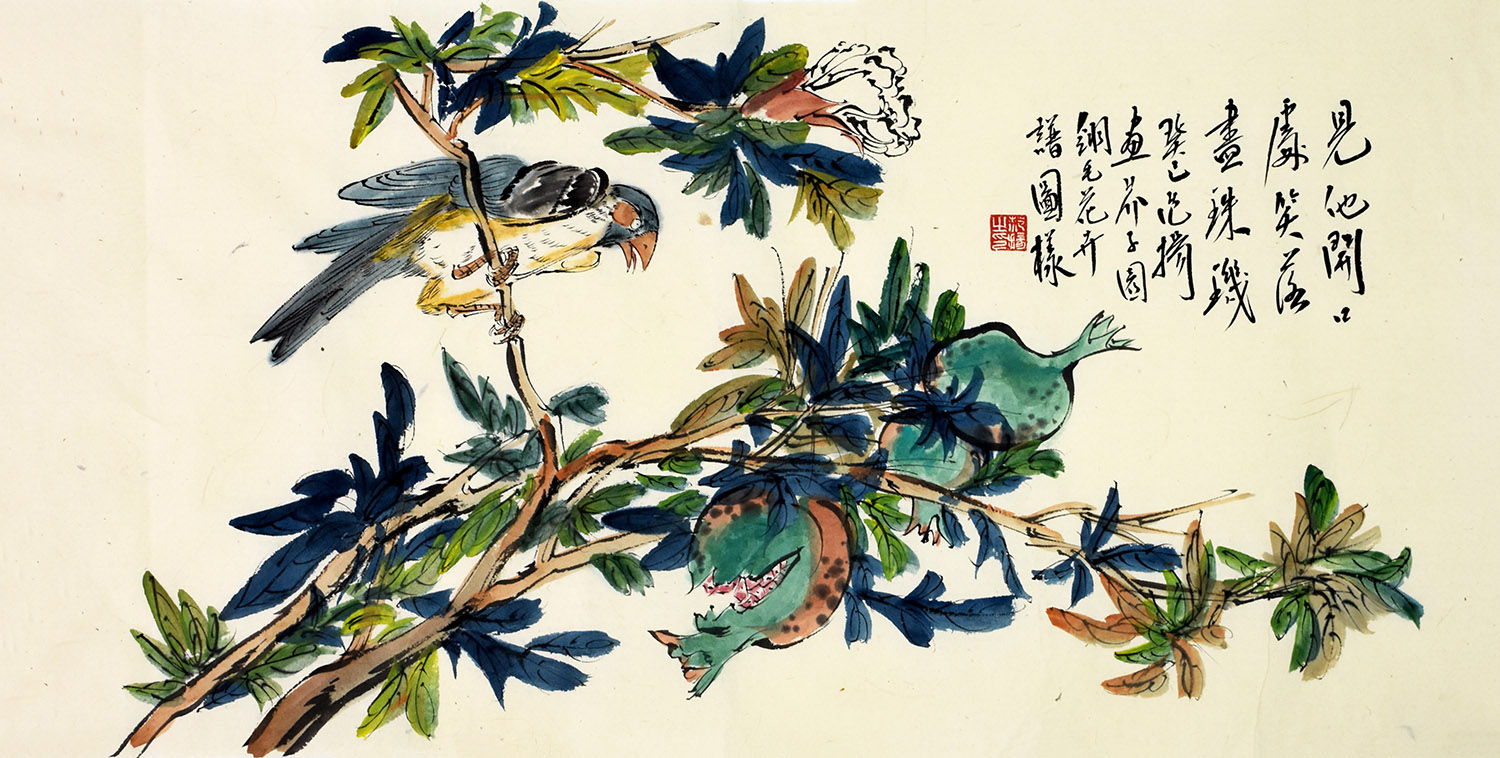 見他開口
處笑落
盡珠璣
癸巳范揚
畫芥子園
翎毛花卉
譜圖樣